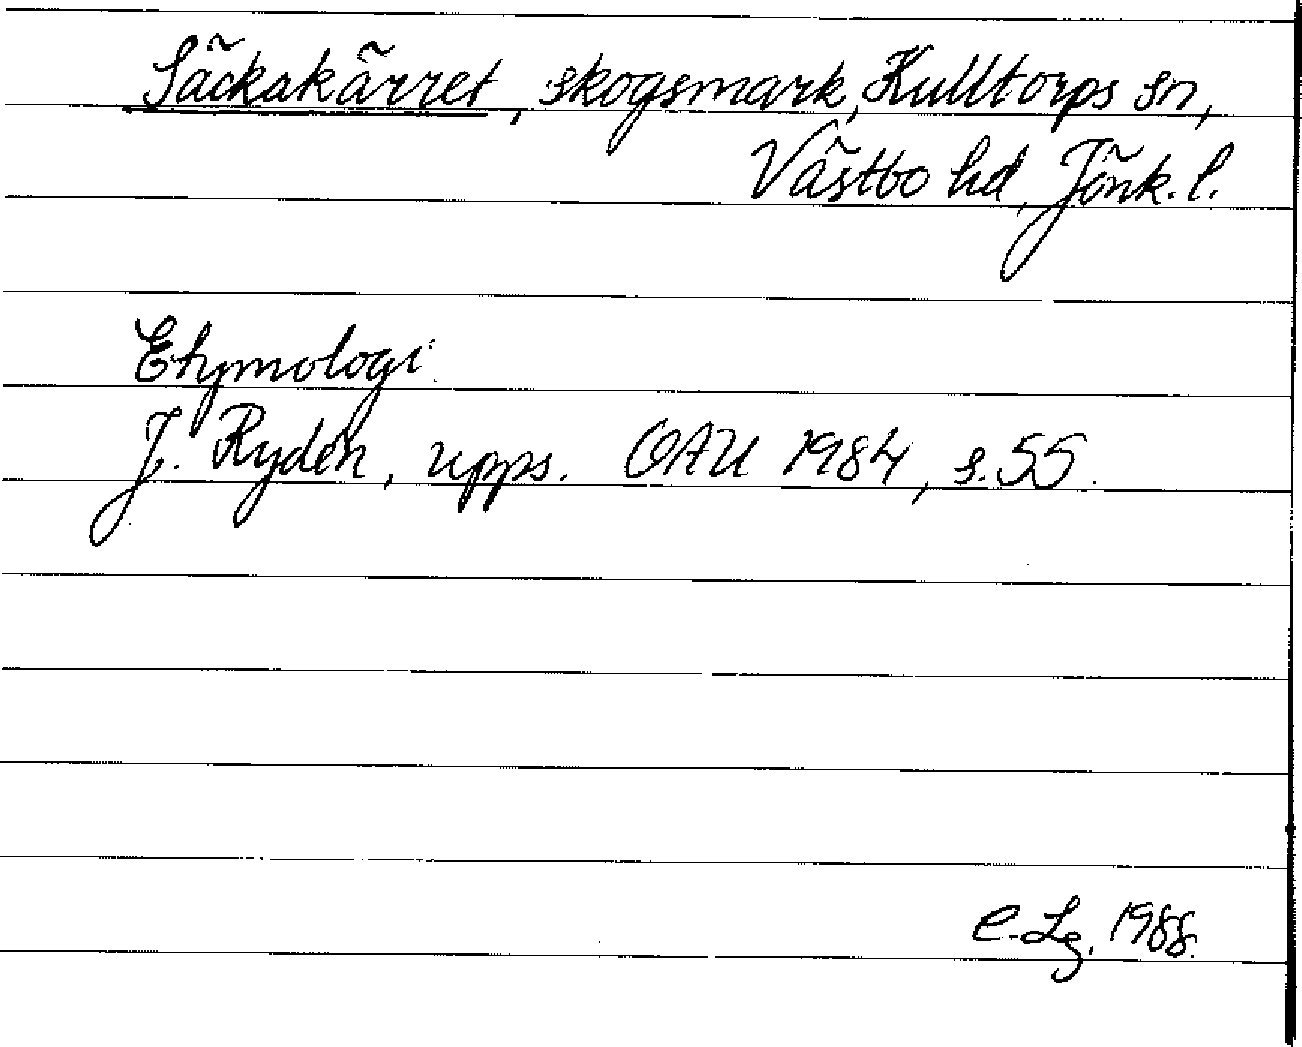 Säckakärret, skogsmark, Kulltorps sn,
Västbo hd, Jönk. l.
Etymologi:
J. Rydén, upps. OAU 1984, s. 55.
C. Lg. 1988.